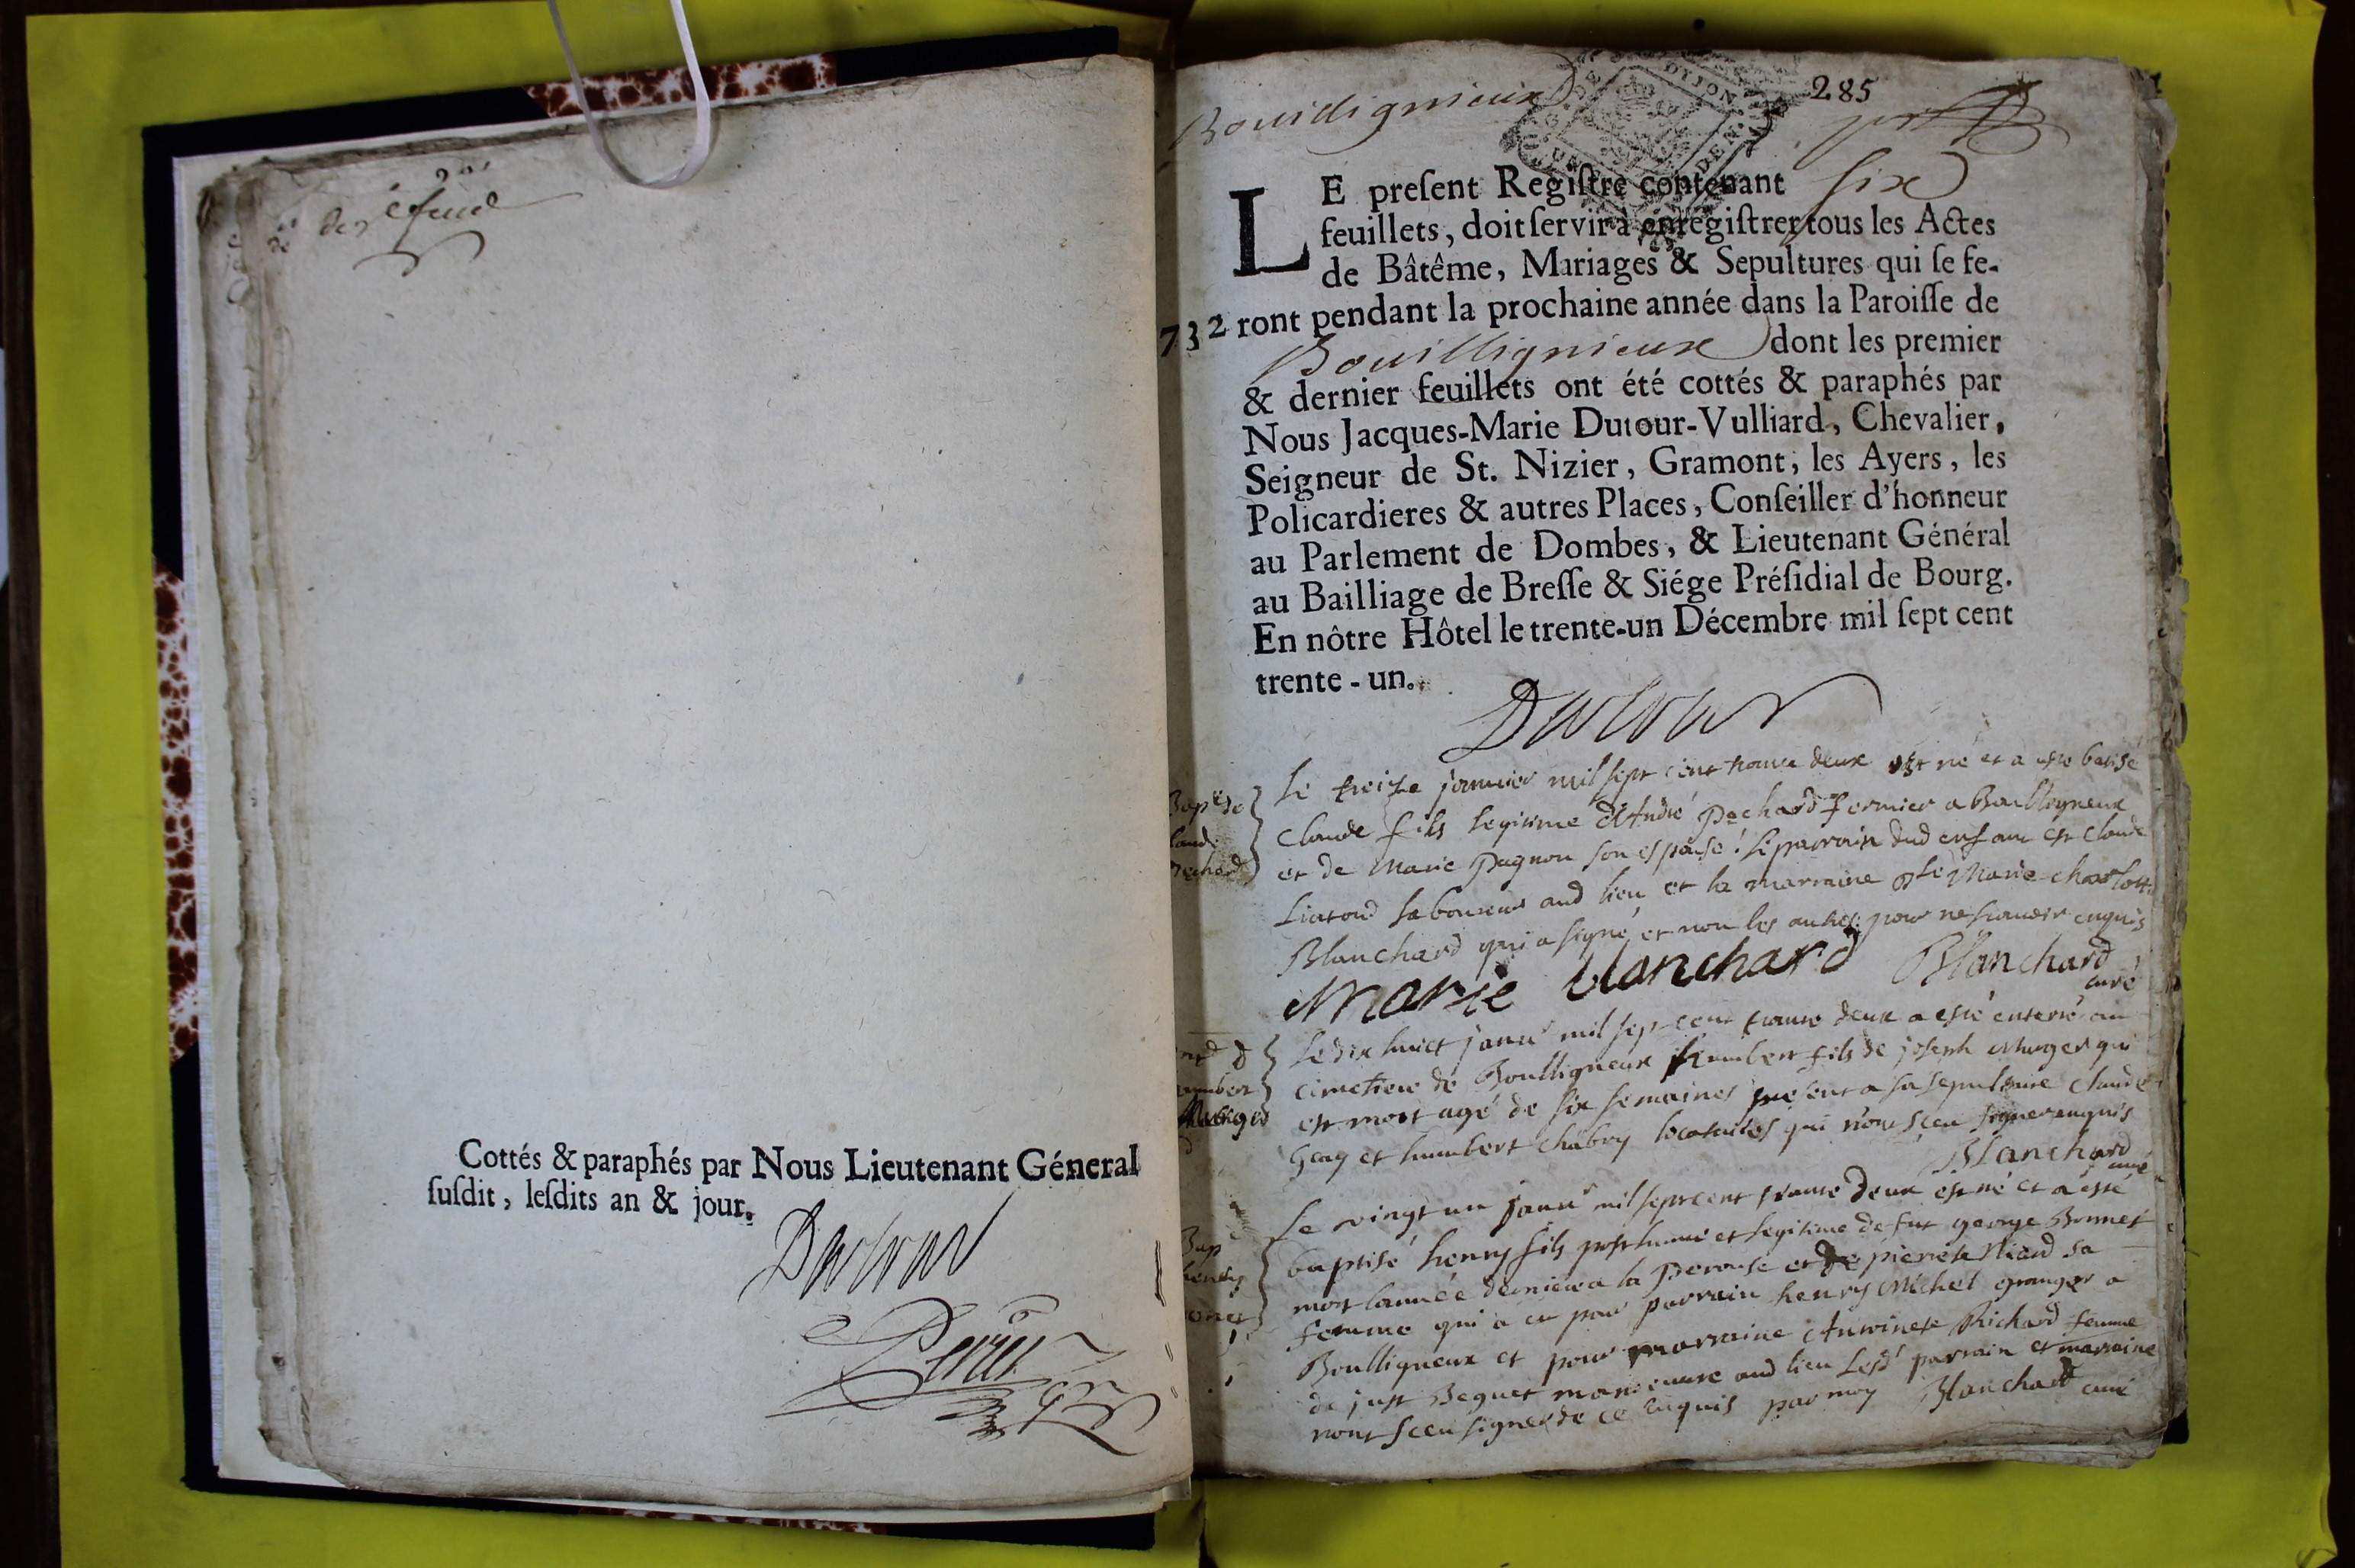 Cottés & paraphés par Nous Lieutenant Géneral
ſuſdit, leſdits an & jour.
Bouillignieux
285
DIJON
LE preſent Regiſtre contenant six
feuillets, doit ſervir à enregiſtrer tous les Actes
de Bâtême, Mariages & Sepultures qui ſe fe-
732 ront pendant la prochaine année dans la Paroiſſe de
Bouillignieux dont les premier
& dernier feuillets ont été cottés & paraphés par
Nous Jacques-Marie Dutour-Vulliard, Chevalier,
Seigneur de St. Nizier, Gramont, les Ayers, les
Policardieres & autres Places, Conſeiller d'honneur
au Parlement de Dombes, & Lieutenant Général
au Bailliage de Breſſe & Siége Préſidial de Bourg.
En nôtre Hôtel le trente-un Décembre mil ſept cent
trente-un.
le treize janvier mil sept cent trante deux est né et a esté batisé
Claude fils legitime d'André Pechard fermier a Boulligneux
et de Marie Pagnon son espouse. le parrain dud enfant est Claude
laboureur aud lieu et la marraine Marie charlotte
Blanchard qui a signé et non les autres pour ne scavoir enquis
Marie blanchard Blanchard
curé
le dix huict janvr mil sept cent trante deux a esté enterré au
cimetiere de Boulligneux humbert fils de joseph Murger qui
est mort agé de six semaines present a sa sepulture Claude
Gay et humbert Chabry locataires qui n'ont sceu signer enquis
Blanchard curé
le vingt un janvr mil sept cent trante deux est né et a esté
baptisé henry fils posthume et legitime de fut george Bonnet
mort lannée derniere a la Perouse et de pierrete Niard sa
femme qui a eu pour parrain henry Michel granger a
Boulligneux et pour marraine Antoinete Richard femme
de just Beguet manoeuvre aud lieu lesd parrain et marraine
nont sceu signer de ce enquis par moy Blanchard curé